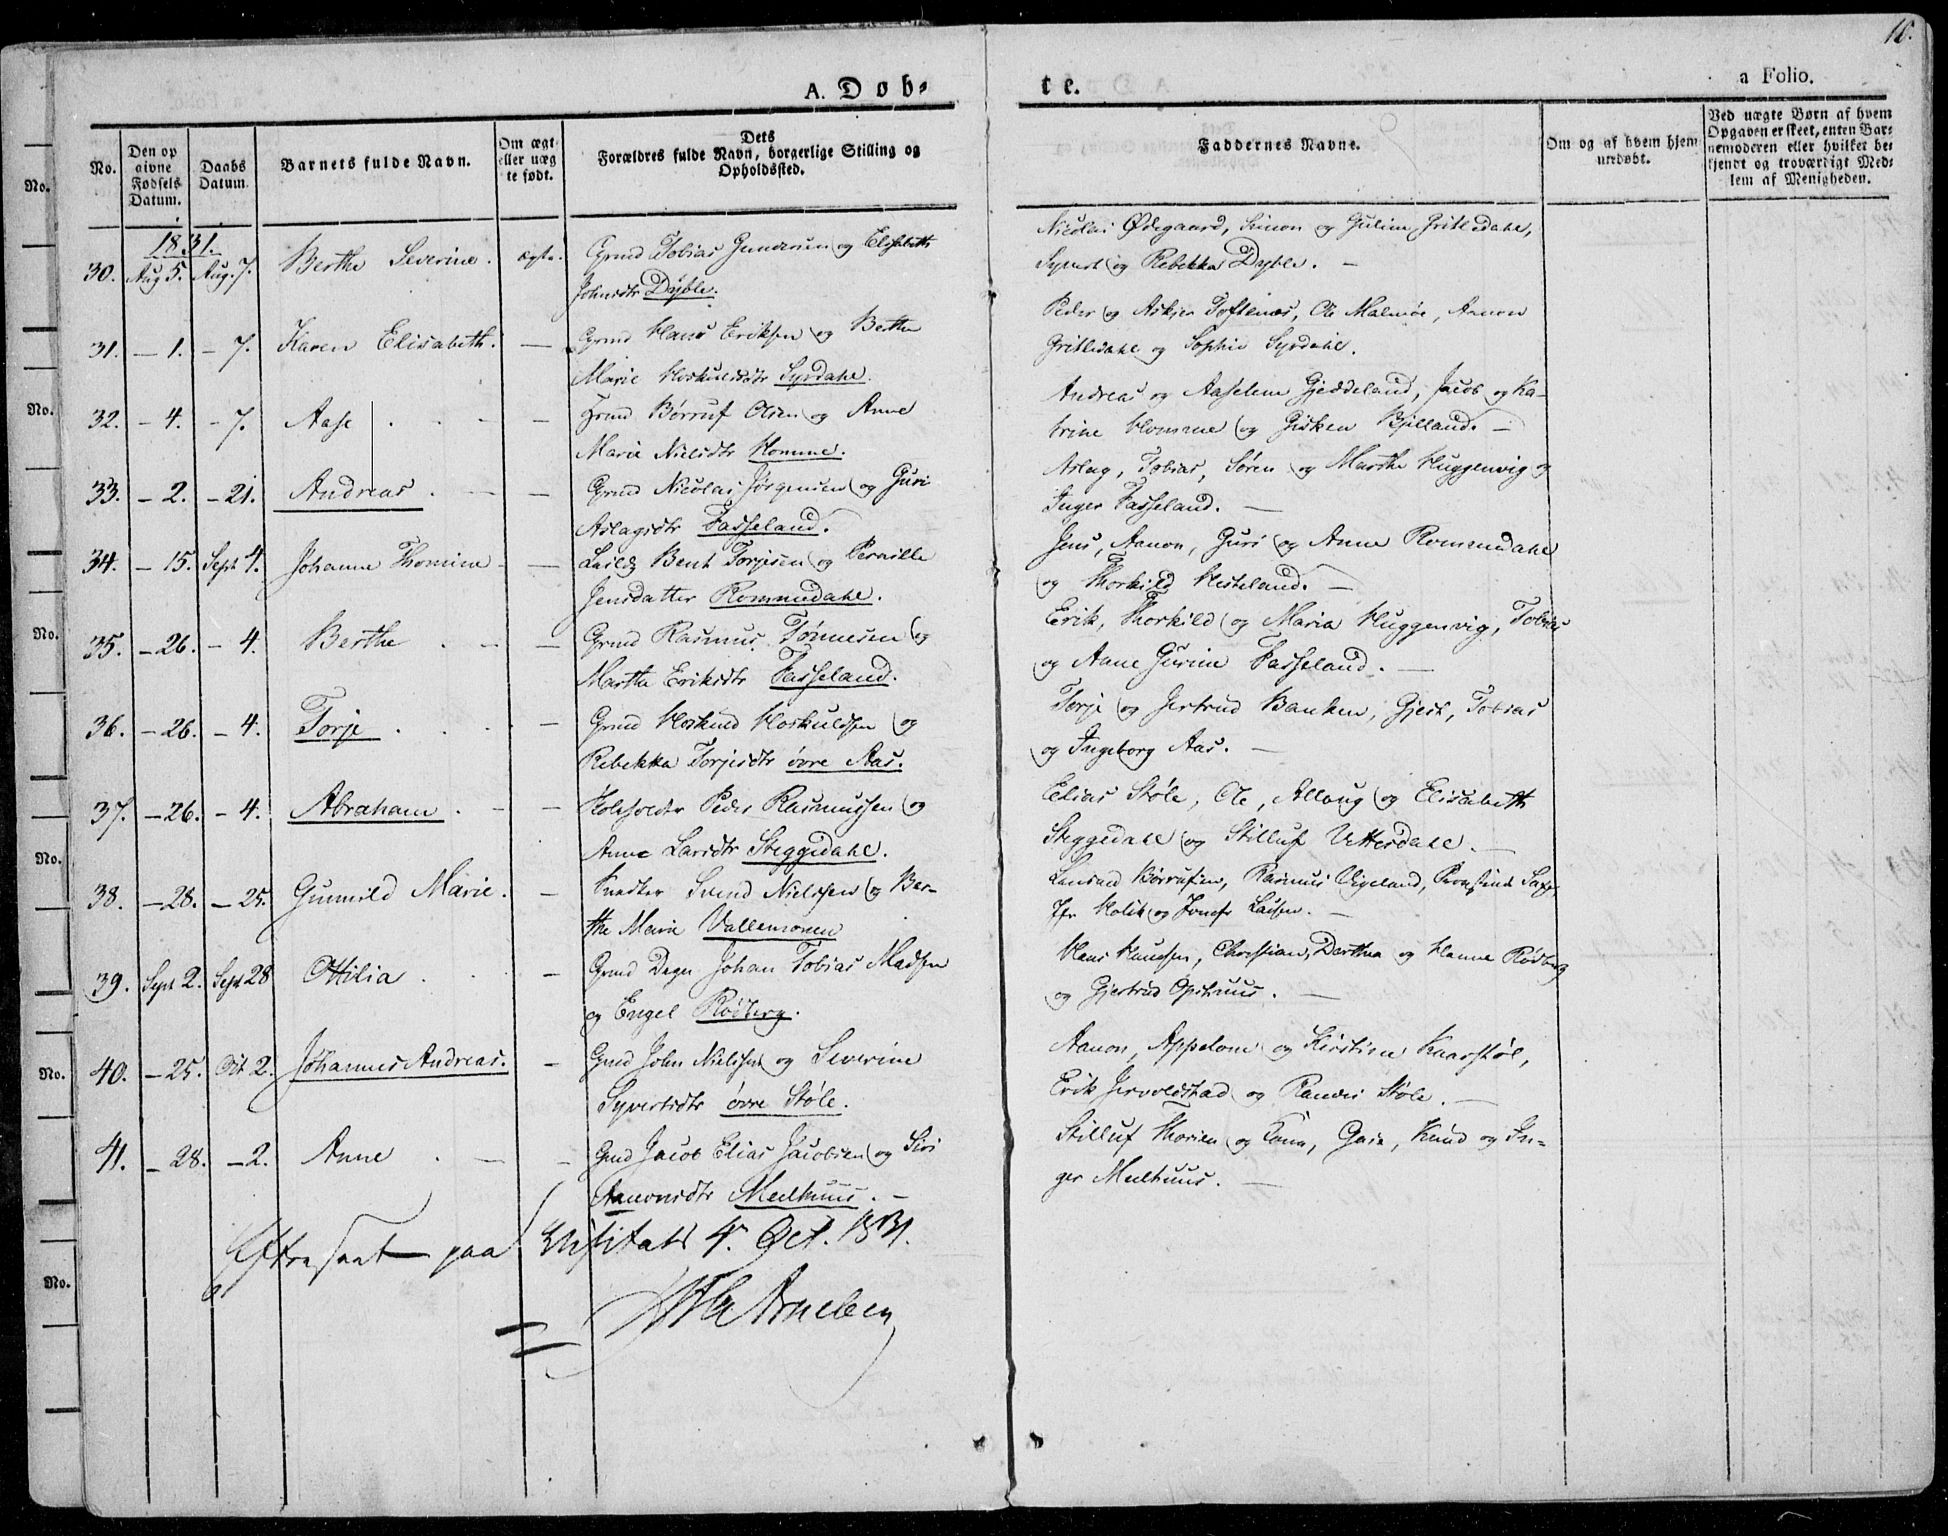 16.
A. Døb-
te.
a Folio.
No.
Den op
givne
Fødsels
Datum.
Daabs
Datum.
Barnets fulde Navn.
Om ægt
eller uæg
te født.
Dets
Forældres fulde Navn, borgerlige Stilling og
Opholdssted.
Faddernes Navne.
Om og af hvem hjem
medøbt.
Ved uægte Børn af hvem
Opgaven er skeet, enten Bar-
nemoderen eller hvilket be-
kjendt og troværdigt Med-
lem af Menigheden.
1831.
30. Aug 5. Aug. 7. Berthe Severine. ægte. Grmd Tobias Gundersen og Elisabeth
Johnsdtr Dyble.
Nicolai Ødegaard, Simon og Guline Gritledahl,
Syvert og Rebekka Dyble. —
31. — 1. — 7. Karen Elisabeth. — Grmd Hans Eriksen og Berthe
Marie Hoskuldsdtr Syrdahl.
Peder og Askjer Toftenæs, Ole Malmøe, Aanon
Gritledahl og Sophie Syrdahl.
32. — 4. — 7. Aase — Grmd Børruf Olsen og Anne
Marie Nielsdtr Homme.
Andreas og Aaselene Gjeddeland, Jacob og Ka-
trine Homme og Gisken Bjilland. —
33. — 2. — 21. Andreas. — Grmd Nicolai Jørgensen og Guri
Aslagsdtr Fasseland.
Aslag, Tobias, Søren og Marthe Huggenvig og
Inger Fasseland. —
34. — 15. Sept 4. Johanne Thomine — Bent Torjesen og Pernille
Jensdatter Rommedahl.
Jens, Aanon, Guri og Anne Rommedahl
og Thorkild Hesteland. —
35. — 26. — 4. Berthe — Grmd Rasmus Tønnesen og
Marthe Eriksdtr Fasseland.
Erik, Thorkild og Maria Huggenvig, Tobias
og Anne Gurine Fasseland. —
36. — 26. — 4. Torje — Grmd Hoskuld Hoskuldsen og
Rebekka Torjesdtr øvre Aas.
Torje og Jertrud Banken, Gjest, Tobias
og Ingeborg Aas. —
37. — 26. — 4. Abraham. — Peder Rasmussen og
Anne Larsdtr Steggedahl.
Elias Støle, Ole, Allaug og Elisabeth
Steggedahl og Stilluf Uttersdahl. —
38. — 28. — 25. Gunnild Marie. — Svend Nielssen og Ber-
the Marie Vallemoen
Børrufsen, Rasmus Vigeland,
og Jomfr Lassen. —
39. Sept 2. Sept 28 Ottilia — Grmd Johan Tobias Madsen
og Engel Rødberg.
Hans Knudsen, Christian, Dorthea og Hanne Rødberg
og Gjertrud Opshuus. —
40. — 25. Oct 2. Johannes Andreas. — Grmd John Nielssen og Severine
Syvertsdtr øvre Støle.
Aanon, Appelone og Kirstine Kaarstøl,
Erik Jervoldstad og Randi Støle. —
41. — 28. — 2. Anne — Grmd Jacob Elias Jacobsen og Siri
Aanonsdtr Meelhuus. —
Stilluf Thorsen og Kone, Knud og In-
ger Meelhuus. —
Eftersaat paa Visitats 4. Oct. 1831.
No.
No.
No.
No.
No.
No.
No.